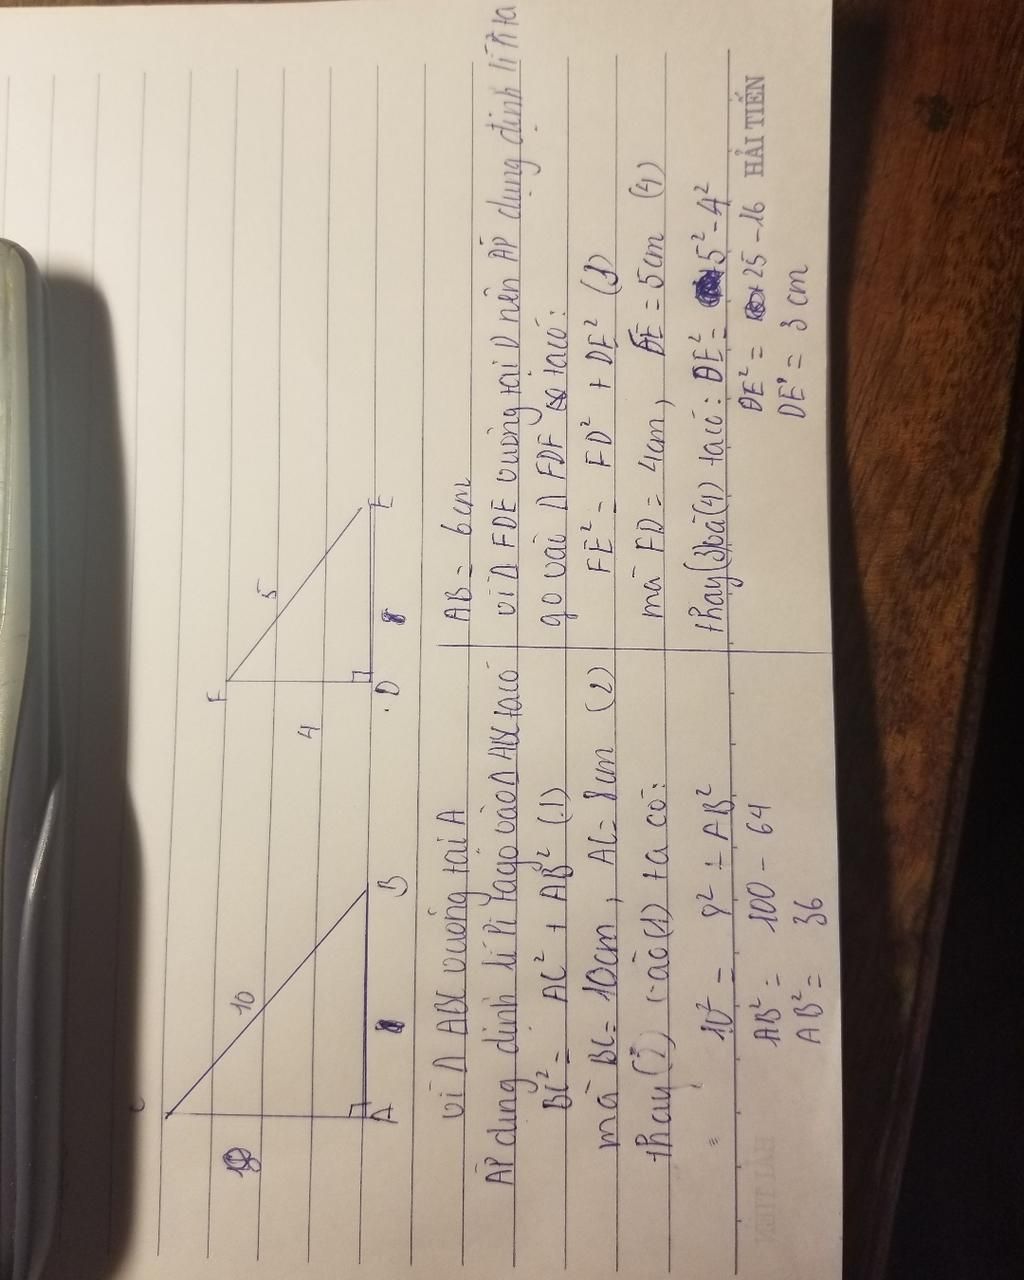 C
10
A
B
F
5
4
D
E
Vì Δ ABC vuông tại A
Áp dụng định lí Pi tago vào Δ ABC ta có
BC² = AC² + AB² (1)
mà BC = 10cm, AC = 8cm (2)
thay (2) vào (1) ta có:
10² = 8² + AB²
AB² = 100 - 64
AB² = 36
AB = 6cm
vì Δ FDE vuông tại D nên ÁP dụng định lí Pi ta
go vài Δ FDF ta có:
FE² = FD² + DE² (3)
mà FD = 4cm, DE = 5cm (4)
thay (3) và (4) ta có: DE² = 5² - 4²
DE² = 25 - 16
DE² = 3 cm
HẢI TIẾN
HẢI TIẾN